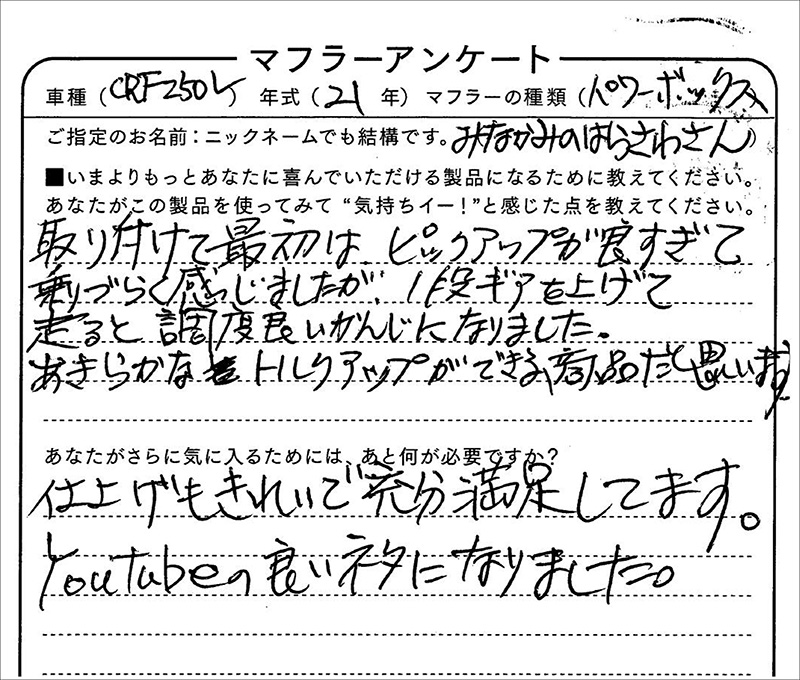 マフラーアンケート
車種（CRF250L）年式（21年）マフラーの種類（パワーボックス）
ご指定のお名前：ニックネームでも結構です。みなかみのはらさわさん）
■いまよりもっとあなたに喜んでいただける製品になるために教えてください。
あなたがこの製品を使ってみて“気持ちイー！”と感じた点を教えてください。
取り付けて最初は、ピックアップが良すぎて
乗りづらく感じましたが、1段ギアを上げて
走ると調度良いかんじになりました。
あきらかなトルクアップができる商品だと思います
あなたがさらに気に入るためには、あと何が必要ですか？
仕上げもきれいで充分満足してます。
Youtubeの良いネタになりました。